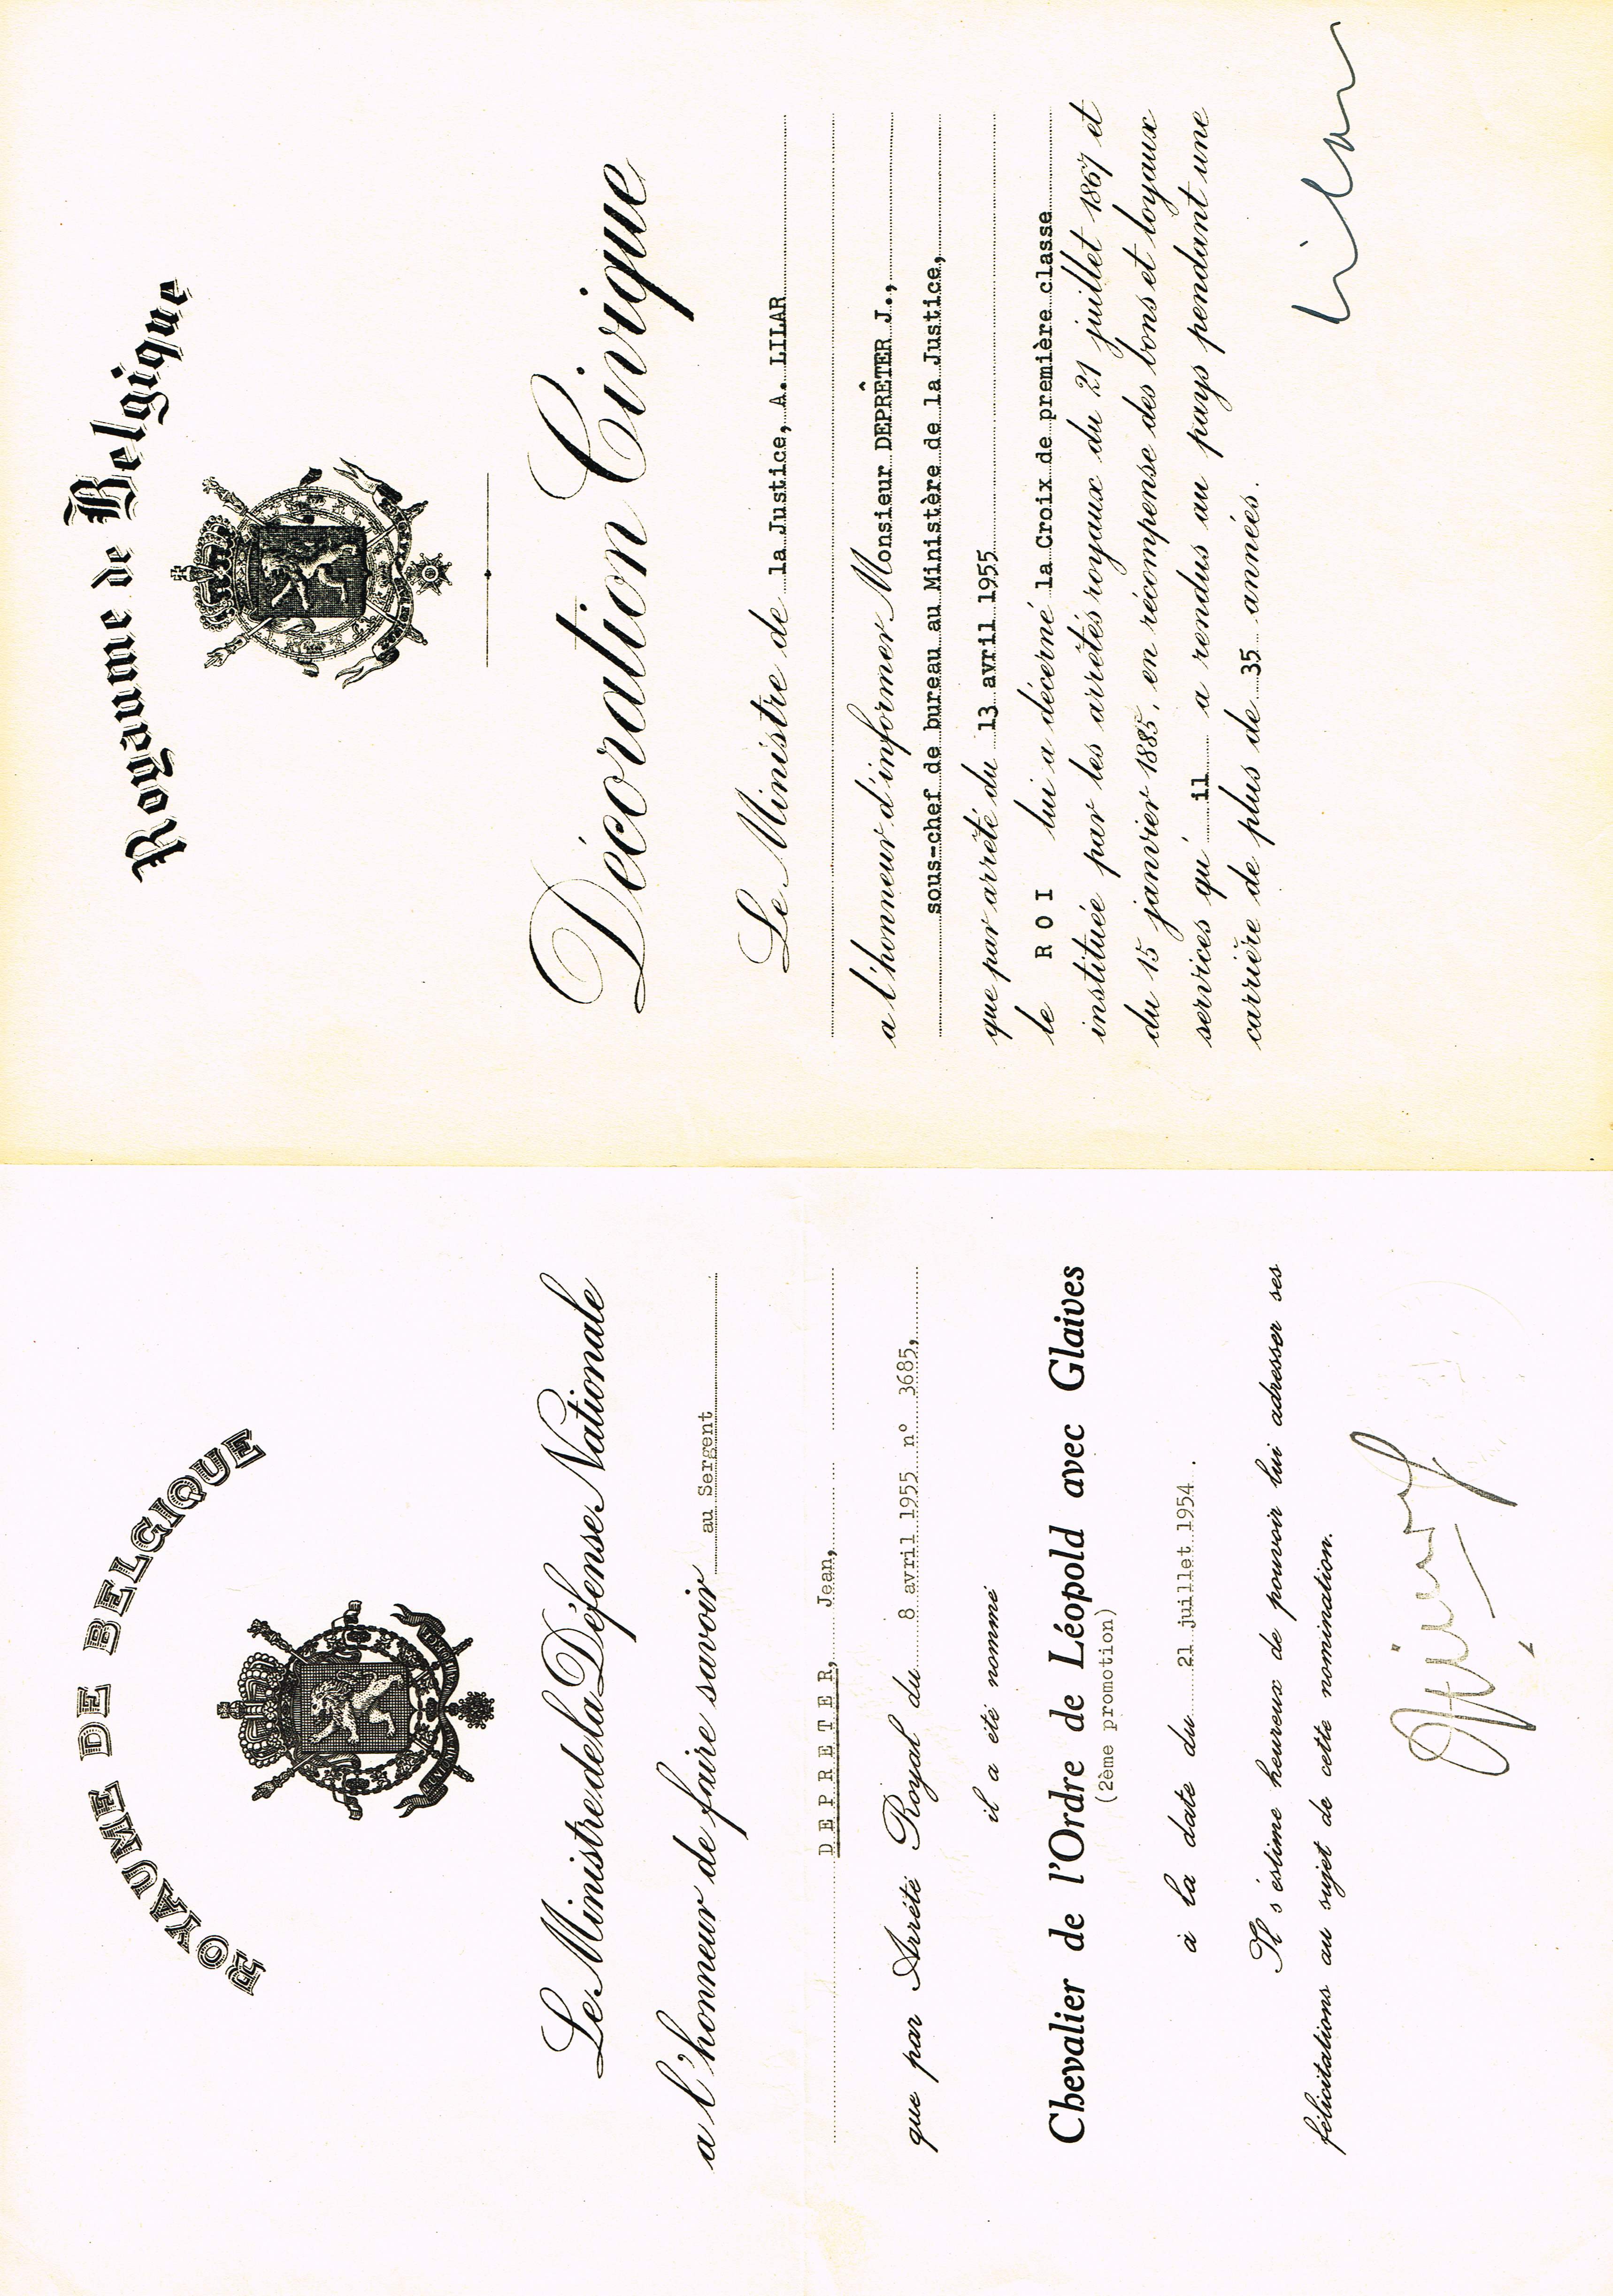 ROYAUME DE BELGIQUE
Le Ministre de la Défense Nationale
a l'honneur de faire savoir au Sergent
DEPRETER, Jean,
que par Arrêté Royal du 8 avril 1955 n° 3685,
il a été nommé
Chevalier de l'Ordre de Léopold avec Glaives
(2ème promotion)
à la date du 21 juillet 1954 .
Il s'estime heureux de pouvoir lui adresser ses
félicitations au sujet de cette nomination.
Royaume de Belgique
Décoration Civique
Le Ministre de la Justice, A. LILAR
a l'honneur d'informer Monsieur DEPRÊTER J.,
sous-chef de bureau au Ministère de la Justice,
que par arrêté du 13 avril 1955
le ROI lui a décerné la Croix de première classe
instituée par les arrêtés royaux du 21 juillet 1867 et
du 15 janvier 1885, en récompense des bons et loyaux
services qu' il a rendus au pays pendant une
carrière de plus de 35 années.
Lilar